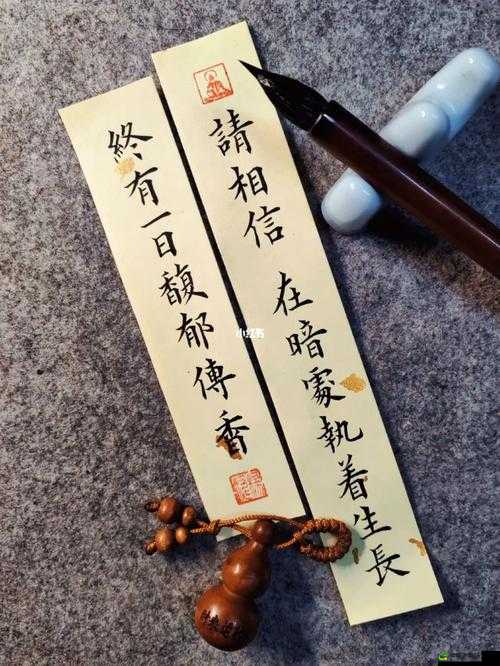 請相信 在暗處執着生長
終有一日馥郁傳香
小红书